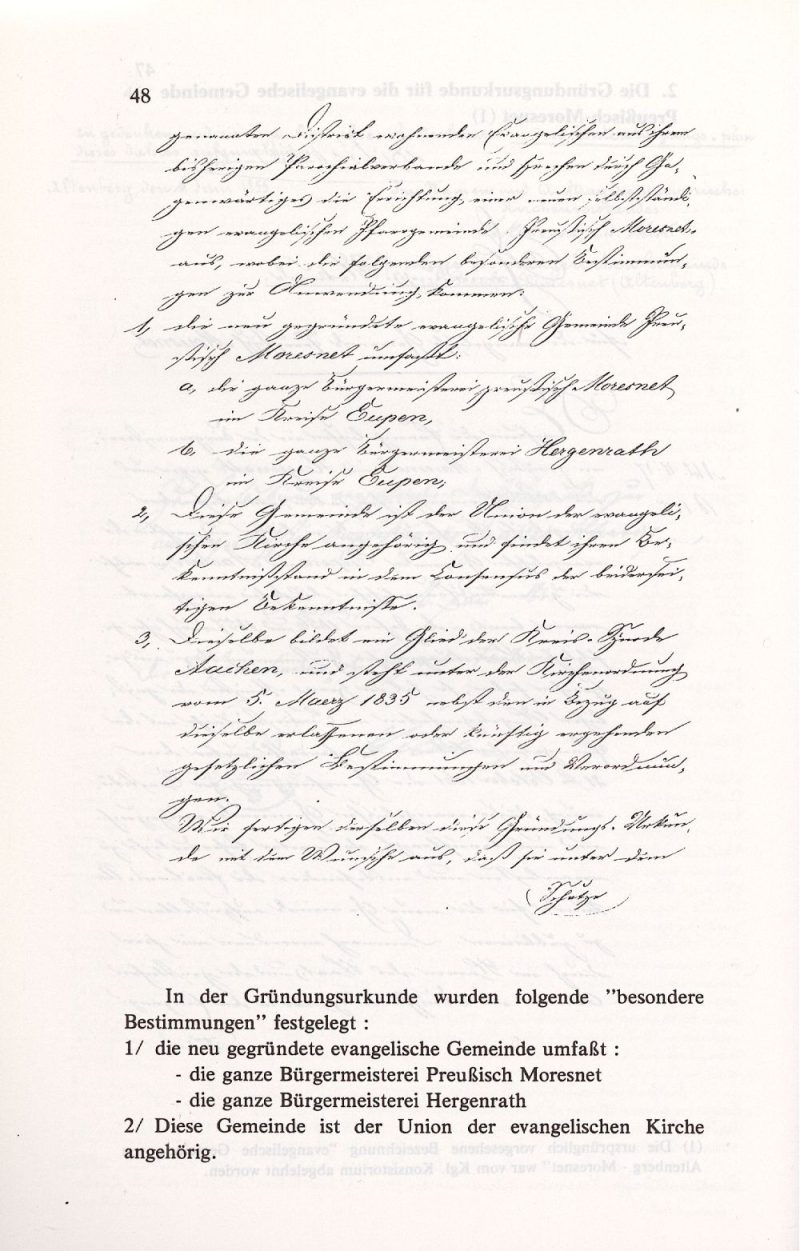 48
genannten District wohnenden Evangelischen aus ihrem
bisherigen Parochialverbande und sprechen durch Ge-
genwärtiges die Errichtung einer neuen selbstständi-
gen evangelischen Pfarrgemeinde Preußisch Moresnet
aus, wobei die folgenden besonderen Bestimmun-
gen zur Anwendung kommen:
1, die neu gegründete evangelische Gemeinde Preu-
ßisch Moresnet umfaßt:
a, die ganze Bürgermeisterei preußisch Moresnet
im Kreise Eupen,
b, die ganze Bürgermeisterei Hergenrath
im Kreise Eupen,
2, Diese Gemeinde ist der Union der evangeli-
schen Kirche angehörig und findet ihren Be-
kenntnißstand in dem Consensus der beidersei-
tigen Bekenntnisse.
3, Dieselbe bildet ein Glied der Kreis-Synode
Aachen, und steht unter der Kirchenordnung
vom 5. Maerz 1835 nebst den in Bezug auf
dieselbe erlassenen oder künftig ergehenden
gesetzlichen Bestimmungen und Verordnun-
gen.
Wir fertigen derselben diese Gründungs-Urkun-
de mit dem Wunsche aus, daß sie unter dem
Schutze
In der Gründungsurkunde wurden folgende ”besondere
Bestimmungen” festgelegt :
1/ die neu gegründete evangelische Gemeinde umfaßt :
- die ganze Bürgermeisterei Preußisch Moresnet
- die ganze Bürgermeisterei Hergenrath
2/ Diese Gemeinde ist der Union der evangelischen Kirche
angehörig.